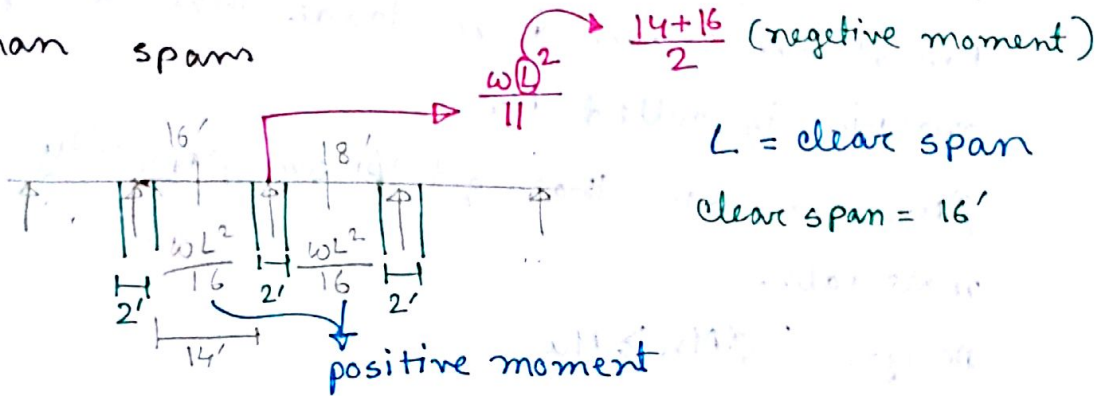 man spans
14+16/2 (negetive moment)
ωL²/11
16' 18'
L = clear span
clear span = 16'
ωL²/16 ωL²/16
2' 2' 2'
14'
positive moment